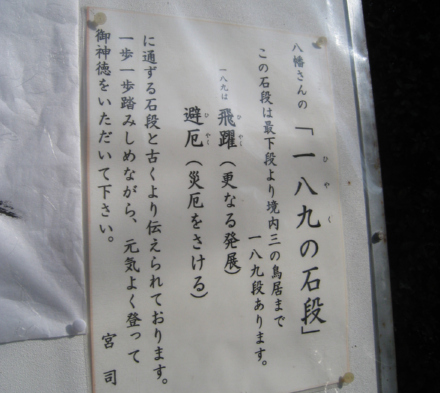 八幡さんの「一八九の石段」
ひやく
この石段は最下段より境内三の鳥居まで
一八九段あります。
一八九は 飛躍(更なる発展)
ひやく
避厄(災厄をさける)
ひやく
に通ずる石段と古くより伝えられております。
一歩一歩踏みしめながら、元気よく登って
御神徳をいただいて下さい。
宮司